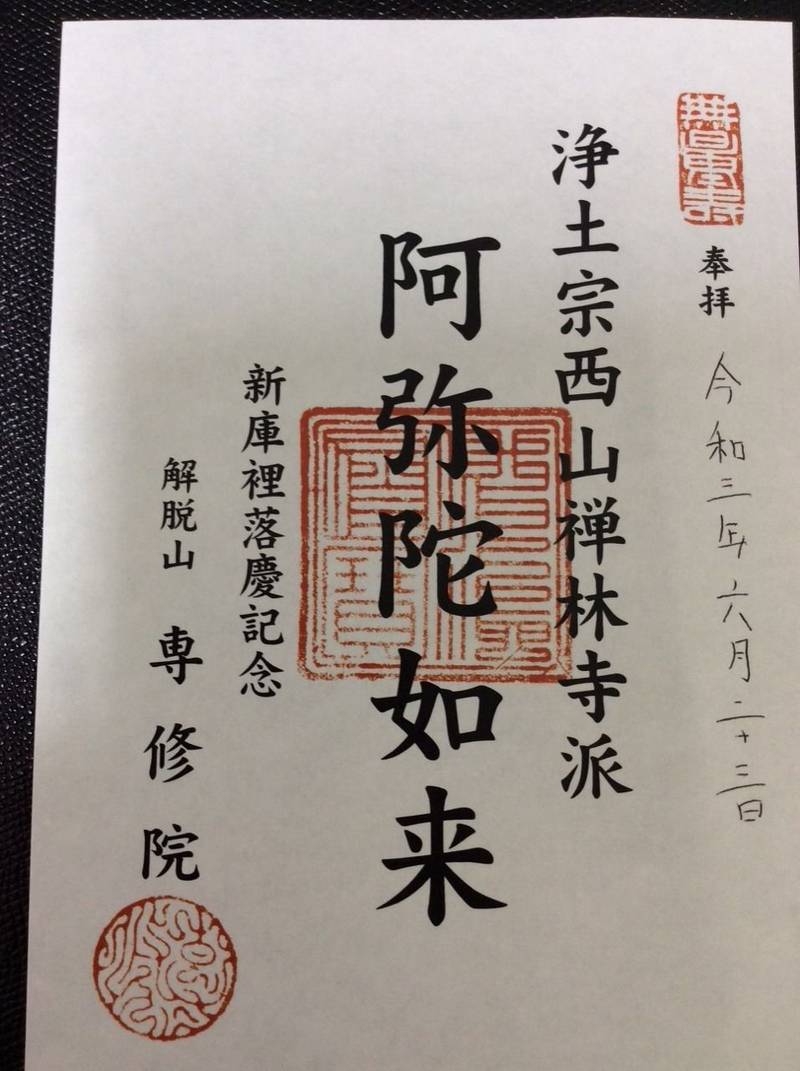 奉拝 令和三年六月二十三日
浄土宗西山禅林寺派
阿弥陀如来
新庫裡落慶記念
解脱山 専修院